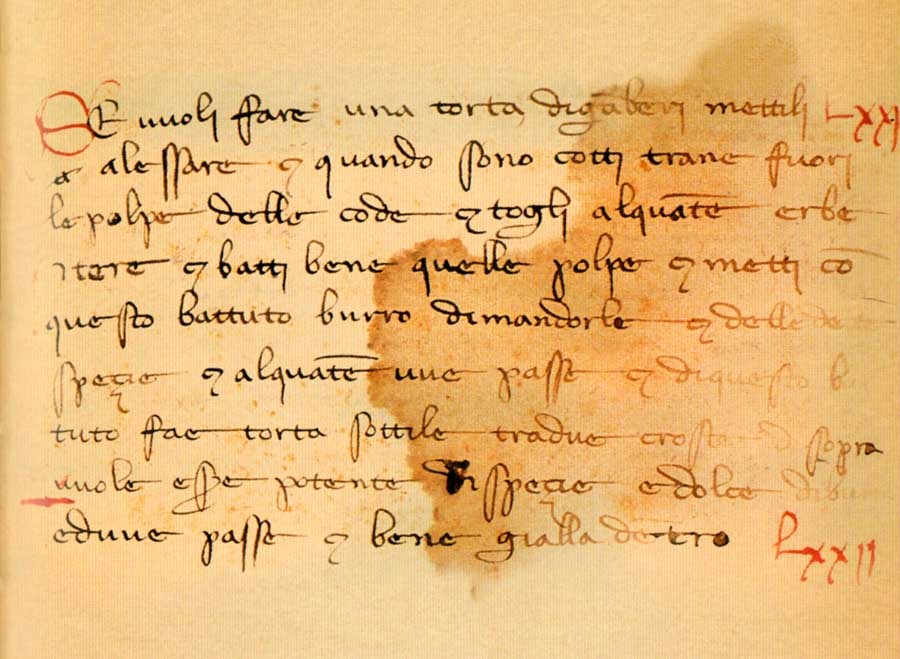 SE vuoli fare una torta digāberi mettili LXXI
a alessare ⁊ quando sono cotti trane fuori
le polpe delle code ⁊ togli alquāte erbe
⁊ batti bene quelle polpe ⁊ metti cō
questo battuto burro dimandorle ⁊ delle
speçie ⁊ alquāte uve passe ⁊ diquesto
tuto fae torta sottile tradue sopra
vuole esse potente di speçie edolce
eduve passe ⁊ bene gialla dētro LXXII